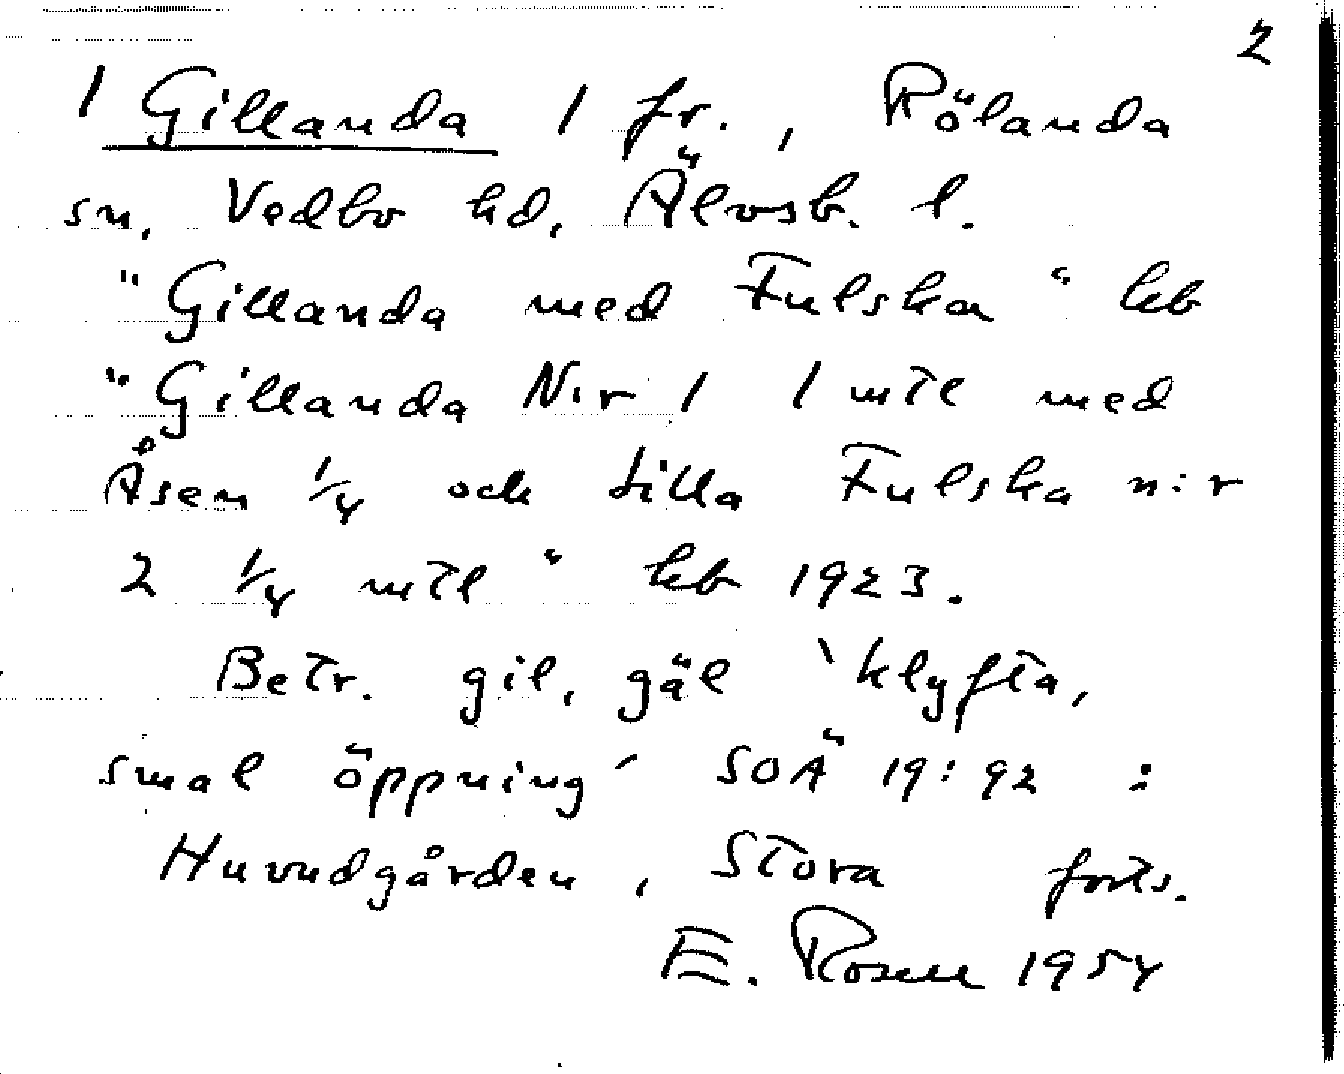 2
1 Gillanda 1 fr., Rölanda
sn, Vedbo hd, Älvsb. l.
"Gillanda med Fulska" kb
"Gillanda N:r 1 1 mtl med
Åsen 1/4 och Lilla Fulska n:r
2 1/4 mtl" kb 1923.
Betr. gil, gäl 'klyfta,
smal öppning' SOÄ 19:92 :
Huvudgården, Stora forts.
E. Rosell 1954